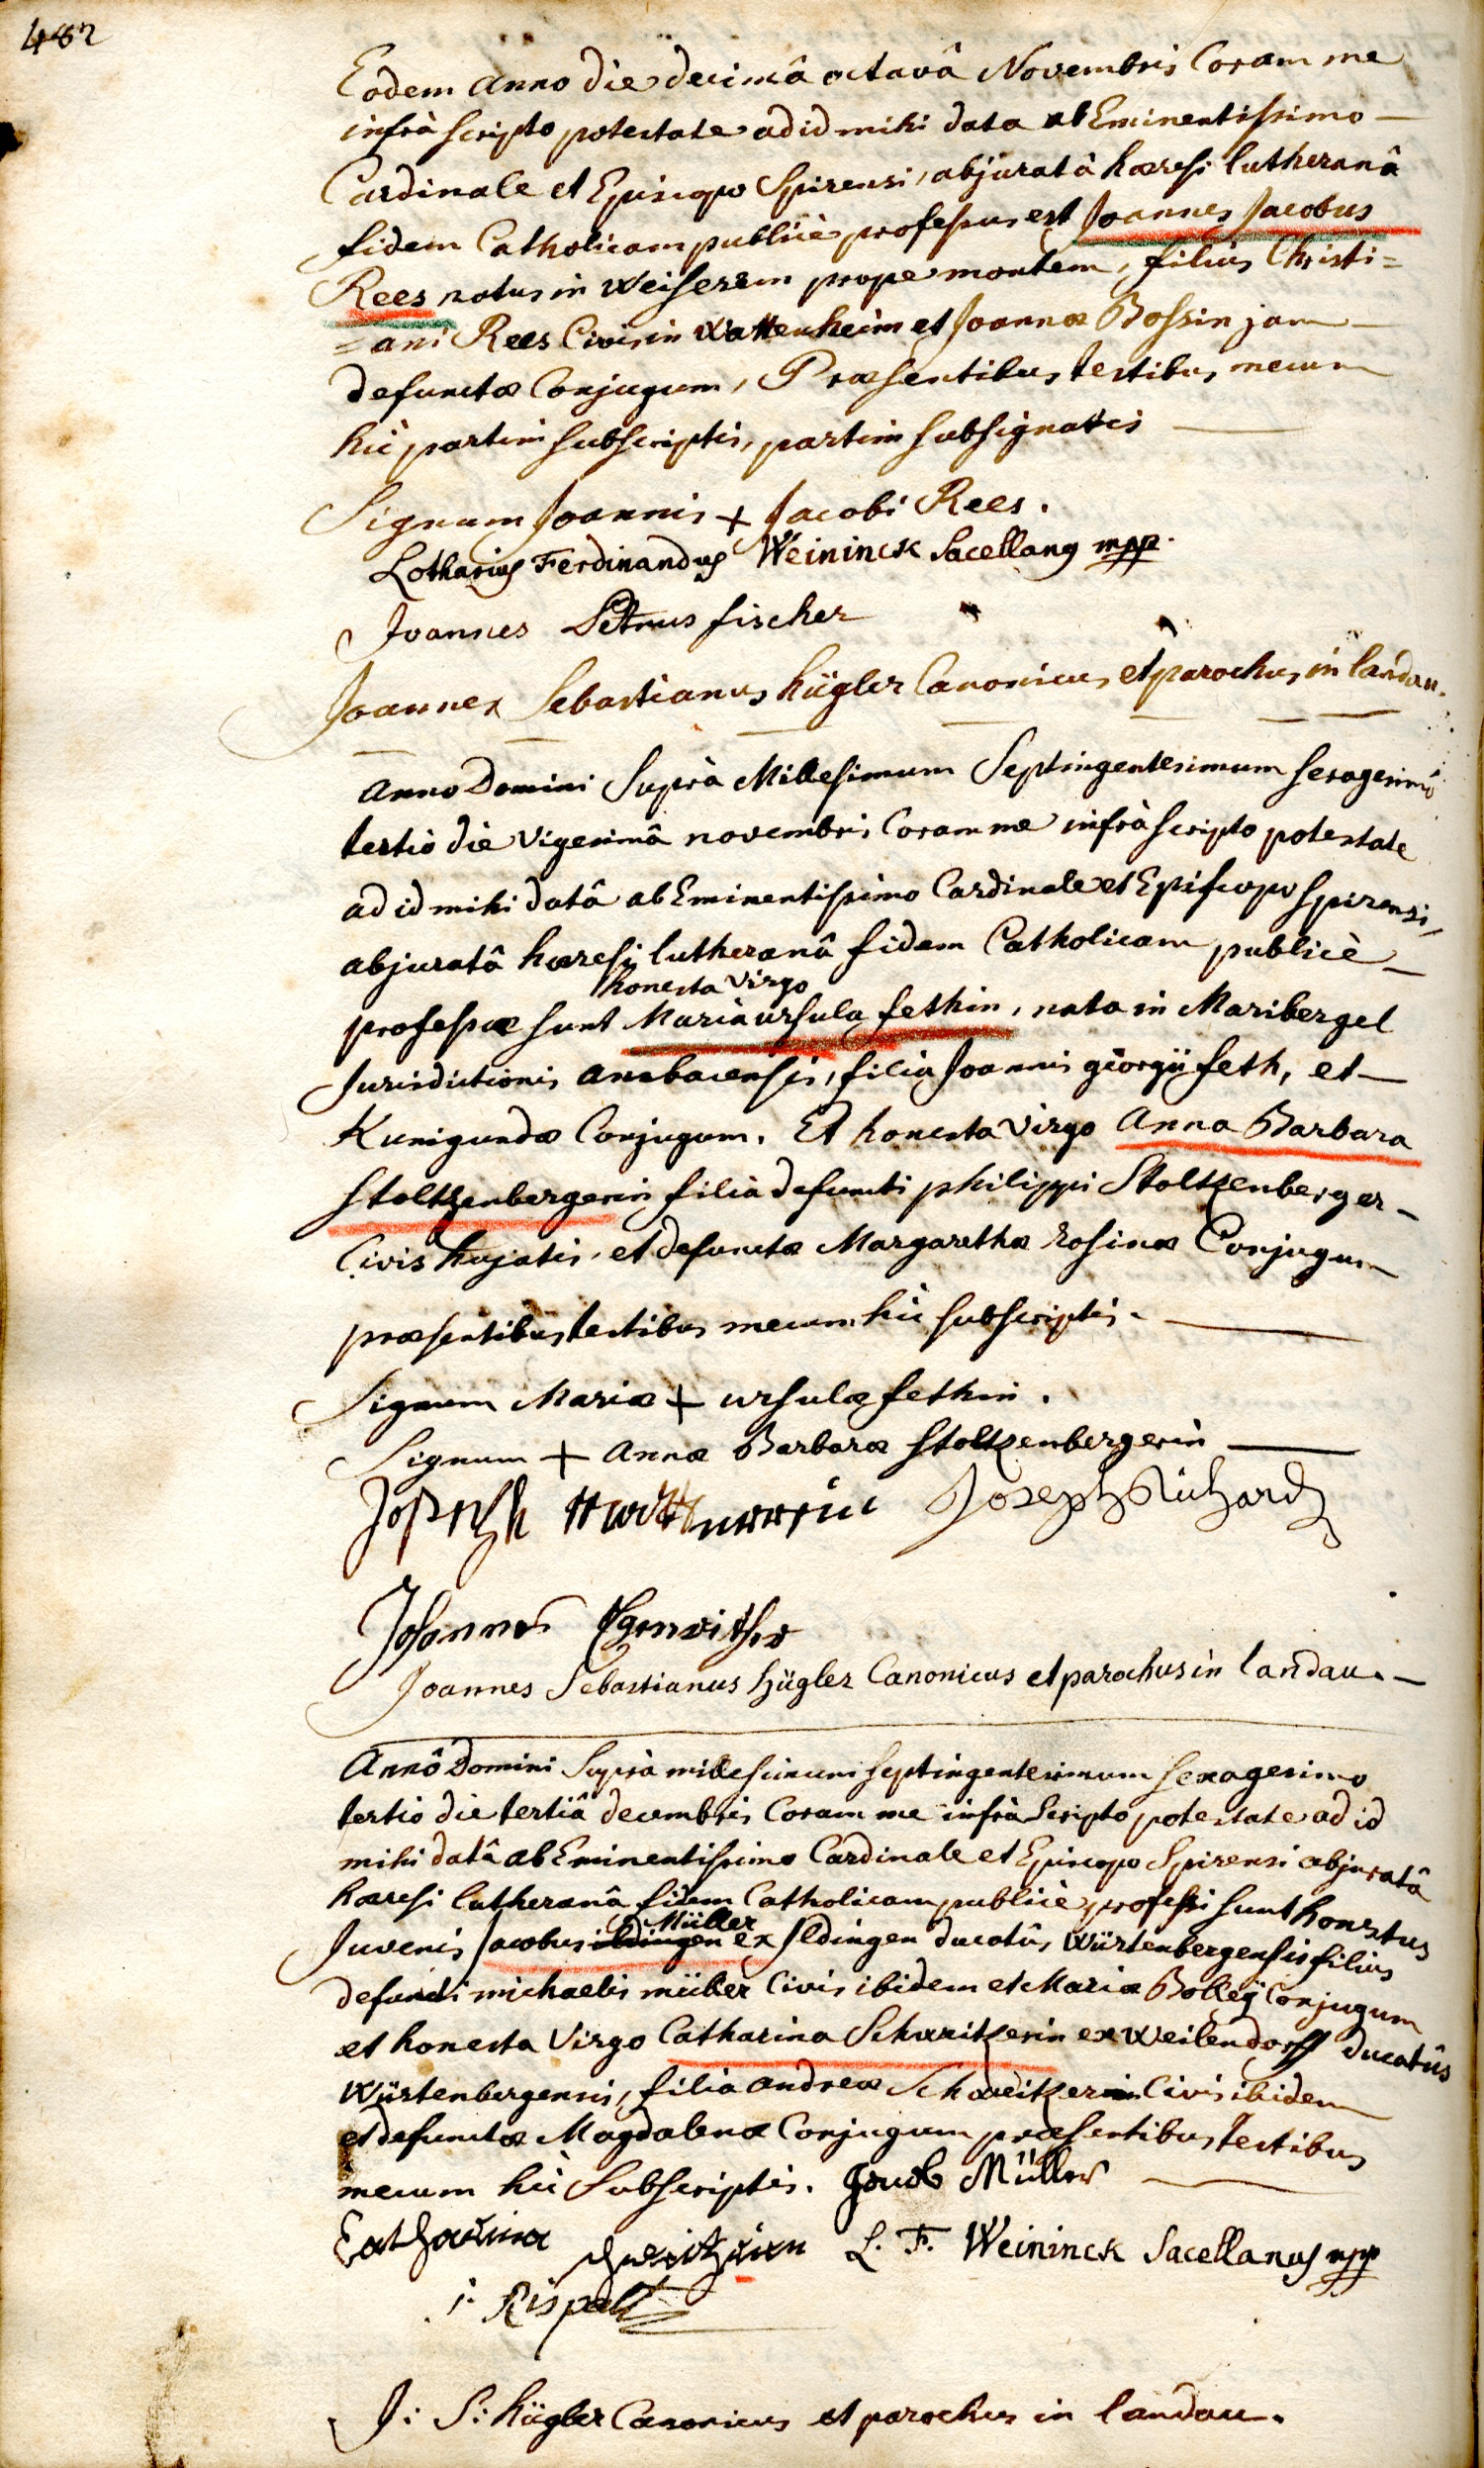 482
Eodem anno die decimâ octavâ Novembris Coram me
infrà scripto potestate ad id mihi data ab Eminentissimo —
Cardinale et Episcopo Spirensi, abjuratâ hæresi lutheranâ
fidem Catholicam publicè professus est Joannes Jacobus
Rees natus in Weisersem prope montem, filius Christi=
=ani Rees Civis in Wattenheim et Joannæ Bossin jam —
defunctæ Conjugum, Præsentibus testibus mecum
hic partim subscriptis, partim subsignatis —
Signum Joannis + Jacobi Rees.
Lotharius Ferdinandus Weininck Sacellanus mpp.
Joannes Petrus fischer
Joannes Sebastianus hügler Canonicus et parochus in landau.
Anno Domini Suprà Millesimum Septingentesimum sexagesimô
tertiò die Vigesimâ novembris Coram me infrà scripto potestate
ad id mihi datâ ab Eminentissimo Cardinale et Episcopo Spirensi,
abjuratâ hæresi lutheranâ fidem Catholicam publicè —
honesta virgo
professæ sunt Maria ursula fethin, nata in Maribergel
Jurisdictionis anabacensis, filia Joannis geörgii feth, et —
Kunigundæ Conjugum. Et honesta Virgo Anna Barbara
Stoltzenbergerin filia defuncti philippi Stoltzenberger —
Civis hujatis, et defunctæ Margarethæ Rosinæ Conjugum
præsentibus testibus mecum hic subscriptis. —
Signum Mariæ + ursulæ fethin.
Signum + Annæ Barbaræ Stoltzenbergerin —
Joseph Joseph Richard
Johannes
Joannes Sebastianus Hügler Canonicus et parochus in landau. —
Annô Domini Suprà millesimum septingentesimum sexagesimo
tertio die tertiâ decembris Coram me infrà Scripto potestate ad id
mihi datâ ab Eminentissimo Cardinale et Episcopo Spirensi abjuratâ
hæresi lutheranâ fidem Catholicam publicè professi sunt honestus
Müller
Juvenis Jacobus ildingen ex Ildingen ducatûs Würtenbergensis filius
defuncti michaelis müller Civis ibidem et Mariæ Bolleÿ Conjugum
et honesta Virgo Catharina Schweitzerin ex Weilendorff ducatûs
Würtenbergensis, filia andreæ Schweitzer Civis ibidem
et defunctæ Magdalenæ Conjugum præsentibus testibus
mecum hic Subscriptis. Jacob Müller —
Catharina schweitzerin L. F. Weininck Sacellanus mpp
j. Rispalt
J: S: hügler Canonicus et parochus in landau.